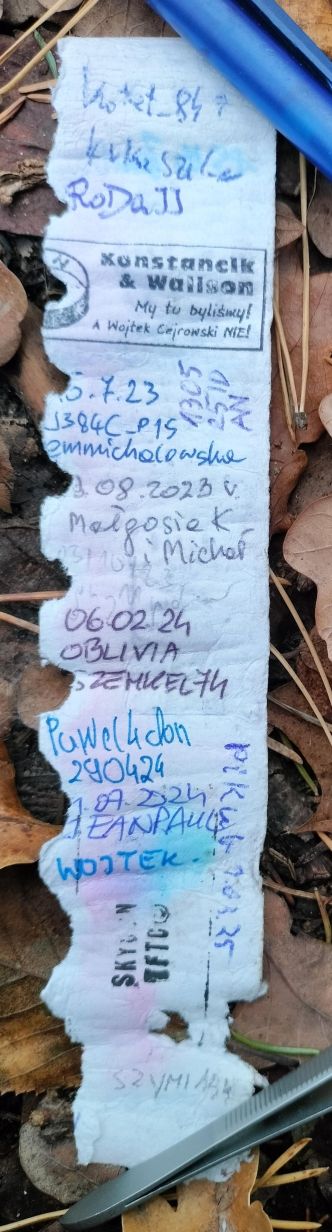 kotet_84 +
RoDaJJ
Konstancik
& Wallson
My tu byliśmy!
A Wojtek Cejrowski NIE!
5.7.23
J384C_P15
emmichalowska
1305
25 ID
AN
9.08.2023 r.
Małgosia K
i Michał
06.02.24
OBLIVIA
SZEMKEL74
Pawel4don
290424
1.07.2024
JEANPAUL
WOJTEK.
SKY
TFTC